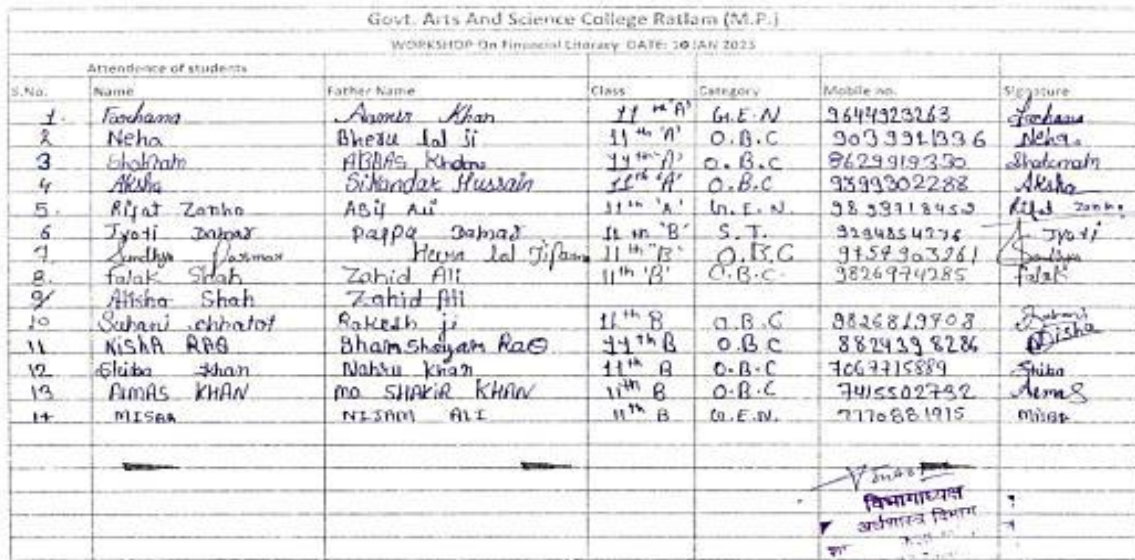 Govt. Arts And Science College Ratlam (M.P.)
WORKSHOP On Financial Literacy DATE: 10 JAN 2023
Attendence of students
S.No. Name Father Name Class Category Mobile no. Signature
1. Farhana Aamir Khan 11th 'A' G.E.N 9644923263 Farhana
2 Neha Bheru lal ji 11th 'A' O.B.C 9039921336 Neha
3 Shabnam ABBAS Khan 11th 'A' O.B.C 8629919330
4 Aksha Sikandar Hussain 11th 'A' O.B.C 9399302288 Aksha
5. Rifat Asif Ali 11th 'A' G.E.N. Rifat
6 Jyoti Damar Pappa Damar 11th "B" S.T. 9294854276 Jyoti
7. Sandhya Parmar lal 11th "B" O.B.C 9754903261
8. falak Shah Zahid Ali 11th 'B' O.B.C. 9826974285 falak
9 Alisha Shah Zahid Ali
10 Suhani chhatot Rakesh ji 11th B O.B.C 9826819708 Suhani
11 KISHA RAO Ghamshayam RaO 11th B O.B.C 8824398286
12 Shiba khan Nahru khan 11th B O.B.C 7067715889 Shiba
13 AlMAS KHAN mo SHAKIR KHAN 11th B O.B.C 7415502792
14 MISBA NIJAM ALI 11th B G.E.N. 7770881915 MISBA
विभागाध्यक्ष
अर्थशास्त्र विभाग